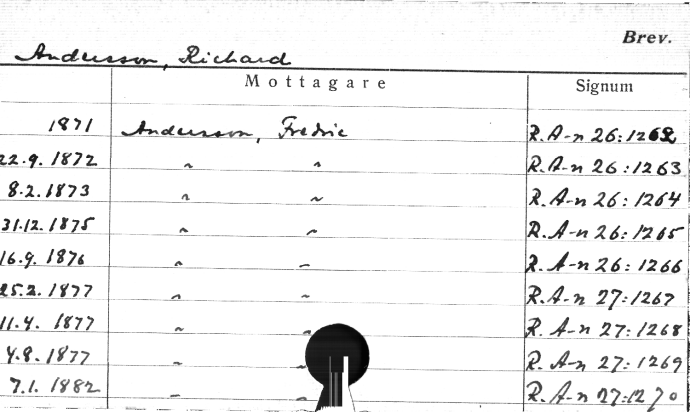 Brev.
Andersson, Richard
Mottagare Signum
1871 Andersson, Fredric R. A-n 26:1262
22.9. 1872 " " R. A-n 26:1263
8.2. 1873 " " R. A-n 26:1264
31.12. 1875 " " R. A-n 26:1265
16.9. 1876 " " R. A-n 26:1266
25.2. 1877 " " R. A-n 27:1267
11.4. 1877 " " R. A-n 27:1268
4.8. 1877 " " R. A-n 27:1269
7.1. 1882 " " R. A-n 27:1270